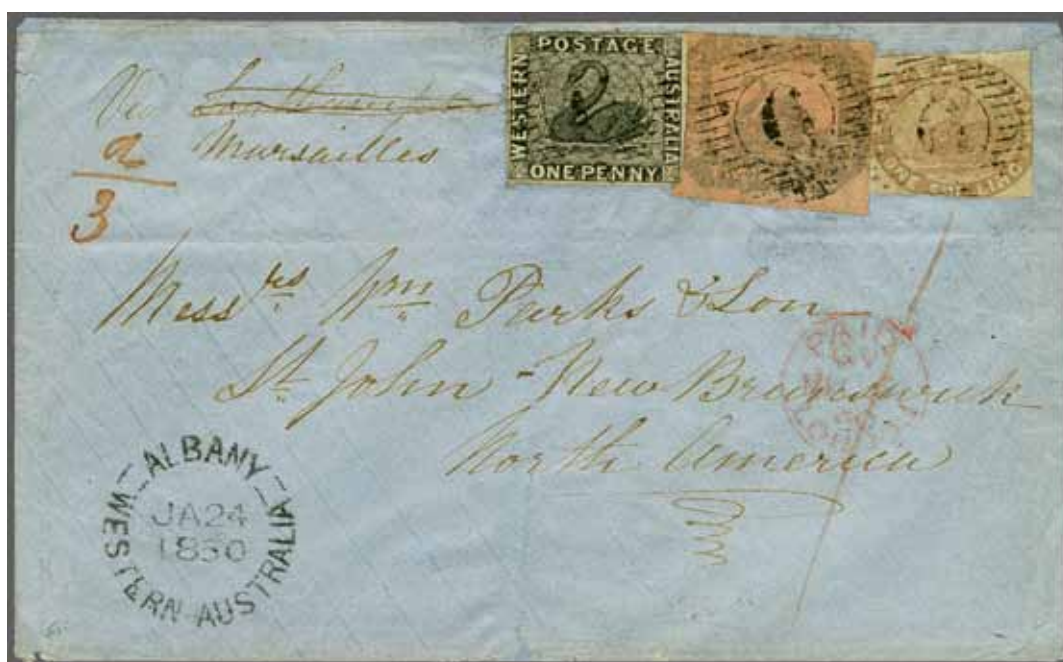 Via Southampton
Marsailles
2
3
POSTAGE
WESTERN
AUSTRALIA
ONE PENNY
ONE SHILLING
Mess rs Wm Parks & Son
St John - New Brunswick
North America
PAID
ALBANY
JA24
1850
WESTERN AUSTRALIA